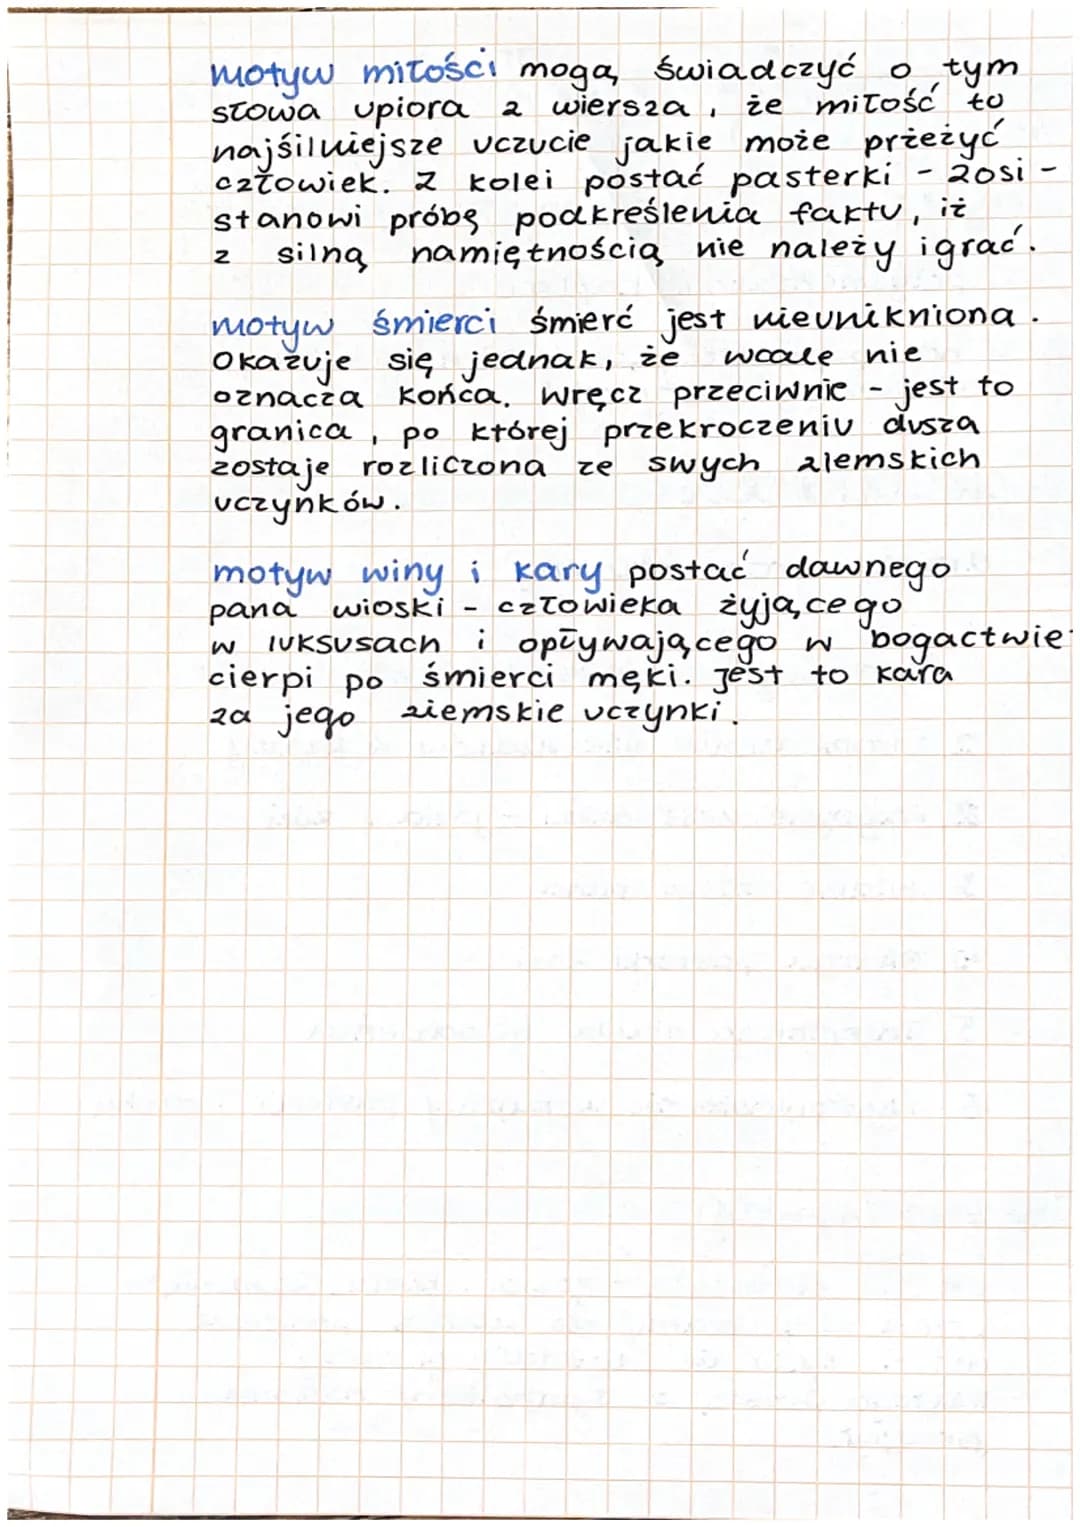 motyw miłości mogą świadczyć o tym
słowa upiora z wiersza, że miłość to
najsilniejsze uczucie jakie może przeżyć
człowiek. Z kolei postać pasterki - Zosi -
stanowi próbę podkreślenia faktu, iż
z silną namiętnością nie należy igrać.
motyw śmierci śmierć jest nieunikniona.
Okazuje się jednak, że wcale nie
oznacza końca. Wręcz przeciwnie - jest to
granica, po której przekroczeniu dusza
zostaje rozliczona ze swych ziemskich
uczynków.
motyw winy i kary postać dawnego
pana wioski - człowieka żyjącego
w luksusach i opływającego w bogactwie
cierpi po śmierci męki. Jest to kara
za jego ziemskie uczynki.